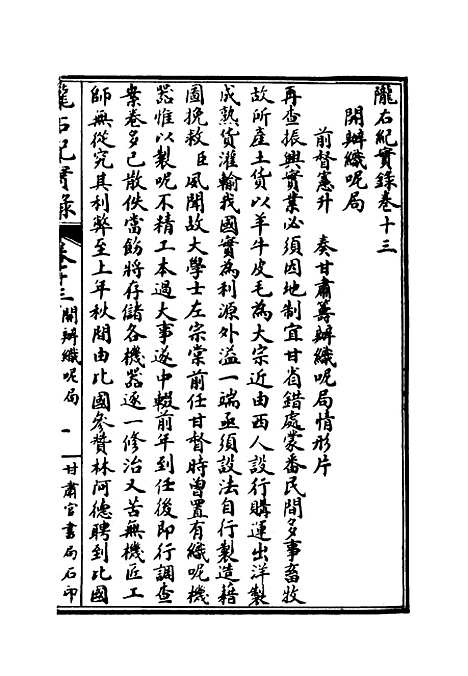 隴右紀實錄卷十三
開辦織呢局
前督憲升　奏甘肅籌辦織呢局情形片
再查振興實業必須因地制宜甘省錯處蒙番民間多事畜牧
故所產土貨以羊牛皮毛為大宗近由西人設行購運出洋製
成熟貨灌輸我國實為利源外溢一端亟須設法自行製造藉
圖挽救臣風聞故大學士左宗棠前任甘督時曾置有織呢機
器惟以製呢不精工本過大事遂中輟前年到任後即行調查
案卷多已散佚當飭將存儲各機器逐一修治又苦無機匠工
師無從究其利弊至上年秋間由比國參贊林阿德聘到比國
隴右紀實錄　卷十三　開辦織呢局　一　甘肅官書局石印